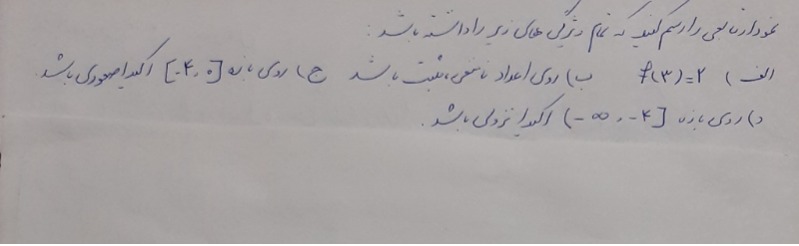 نمودار تابعی را رسم کنید که تمام ویژگی های زیر را داشته باشد:
الف) f(۳)=۲ ب) روی اعداد نامنفی، مثبت باشد ج) روی بازه [-۴,۰] اکیدا صعودی باشد
د) روی بازه (-∞,-۴] اکیدا نزولی باشد.